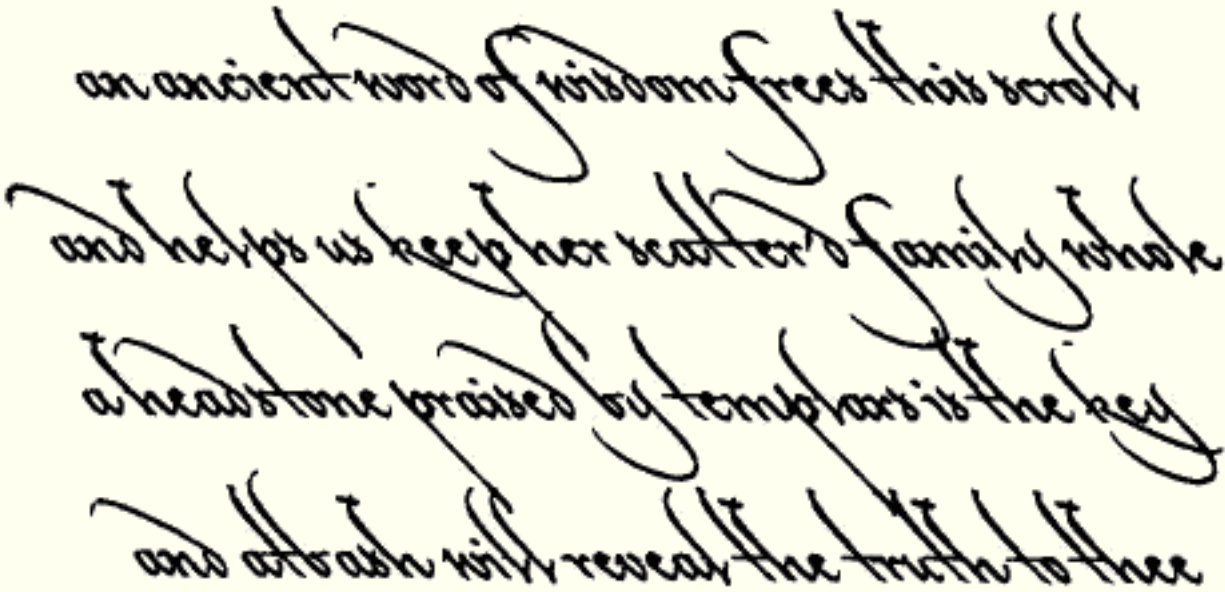 an ancient word of wisdom frees this scroll
and helps us keep her scatter'd family whole
a headstone praised by templars is the key
and atbash will reveal the truth to thee